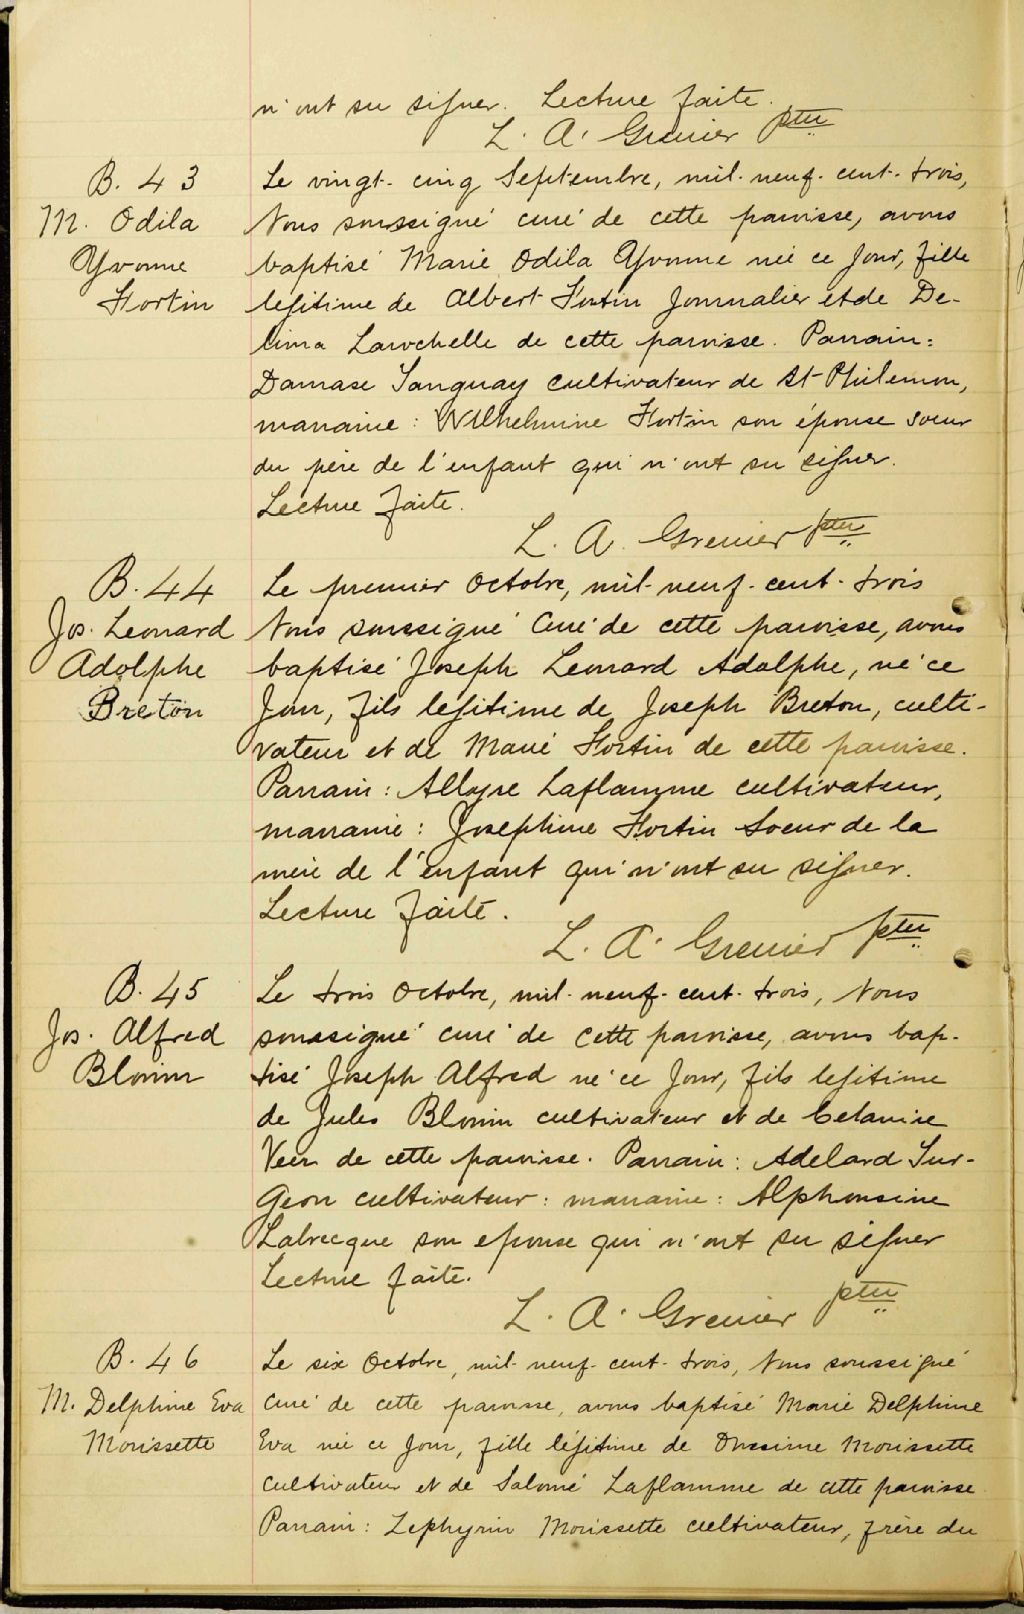 n'ont su signer. Lecture faite.
L. A. Grenier ptre
B. 43
M. Odila
Yvonne
Fortin
Le vingt-cinq Septembre, mil-neuf-cent-trois,
Nous soussigné curé de cette paroisse, avons
baptisé Marie Odila Yvonne née ce jour, fille
légitime de Albert Fortin Journalier et de De-
lima Larochelle de cette paroisse. Parrain:
Damase Tanguay cultivateur de St-Philemon,
marraine: Wilhelmine Fortin son épouse soeur
du père de l'enfant qui n'ont su signer.
Lecture faite.
L. A. Grenier ptre
B. 44
Jos. Leonard
Adolphe
Breton
Le premier Octobre, mil-neuf-cent-trois
Nous soussigné Curé de cette paroisse, avons
baptisé Joseph Leonard Adolphe, né ce
Jour, fils légitime de Joseph Breton, culti-
vateur et de Marie Fortin de cette paroisse.
Parrain: Allyre Laflamme cultivateur,
marraine: Josephine Fortin Soeur de la
mère de l'enfant qui n'ont su signer.
Lecture faite.
L. A. Grenier ptre
B. 45
Jos. Alfred
Blouin
Le trois Octobre, mil-neuf-cent-trois, Nous
soussigné curé de cette paroisse, avons bap-
tisé Joseph Alfred né ce Jour, fils légitime
de Jules Blouin cultivateur et de Celanire
de cette paroisse. Parrain: Adelard Tur-
geon cultivateur: marraine: Alphonsine
Labrecque son epouse qui n'ont su signer
Lecture faite.
L. A. Grenier ptre
B. 46
M. Delphine Eva
Morissette
Le six Octobre, mil-neuf-cent-trois, Nous soussigné
Curé de cette paroisse, avons baptisé Marie Delphine
Eva née ce Jour, fille légitime de Onesime Morissette
cultivateur et de Salomé Laflamme de cette paroisse
Parrain: Zephyrin Morissette cultivateur, frère du